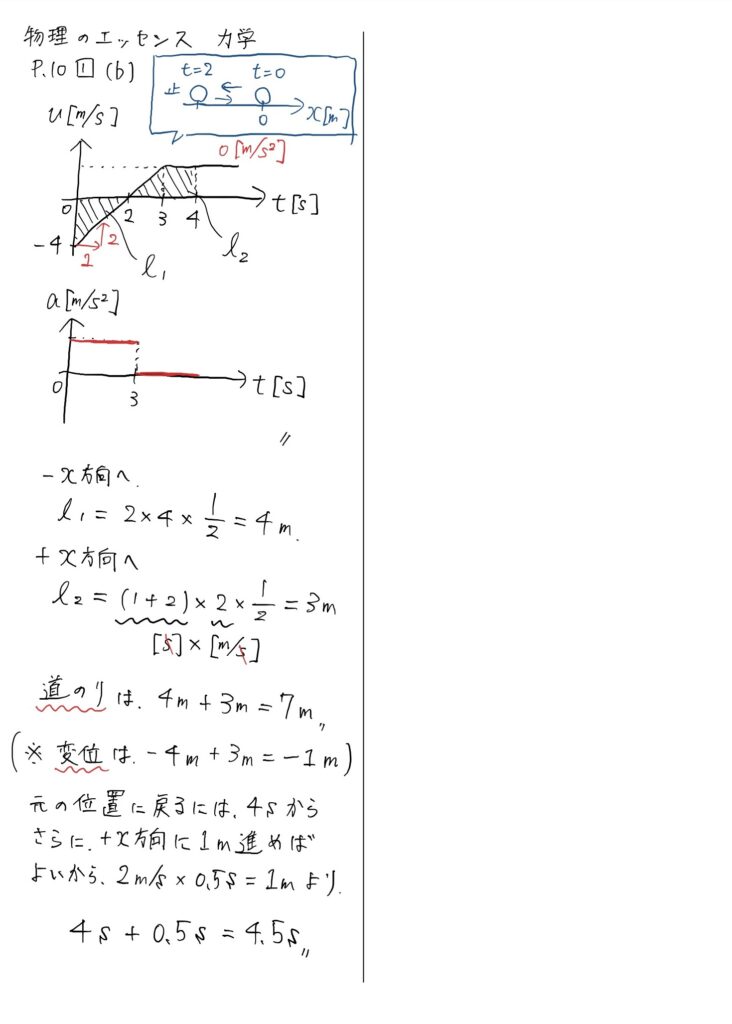 物理のエッセンス 力学
P.10 1 (b)
t=2 t=0
止
0 x[m]
v[m/s]
0[m/s²]
0 2 3 4 t[s]
-4
1 2
l₁ l₂
a[m/s²]
0 3 t[s]
〃
-x方向へ.
l₁ = 2×4×1/2 = 4m.
+x方向へ
l₂ = (1+2)×2×1/2 = 3m
[s]×[m/s]
道のりは、4m+3m=7m〃
(※ 変位は、-4m+3m=-1m)
元の位置に戻るには、4sから
さらに、+x方向に1m進めば
よいから、2m/s×0.5s=1mより、
4s+0.5s=4.5s〃